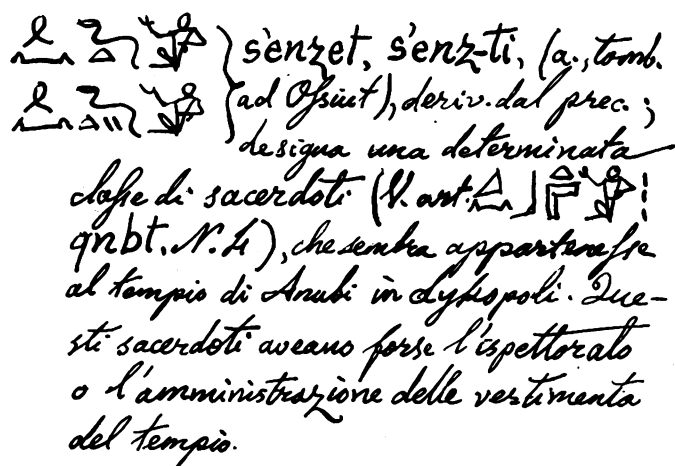 s'enzet, s'enz-ti, (a., tomb.
ad Ossiut), deriv. dal prec.;
designa una determinata
classe di sacerdoti (V. art.
qnbt, N. 4), che sembra appartenesse
al tempio di Anubi in Lykopoli. Que-
sti sacerdoti aveano forse l'ispettorato
o l'amministrazione delle vestimenta
del tempio.